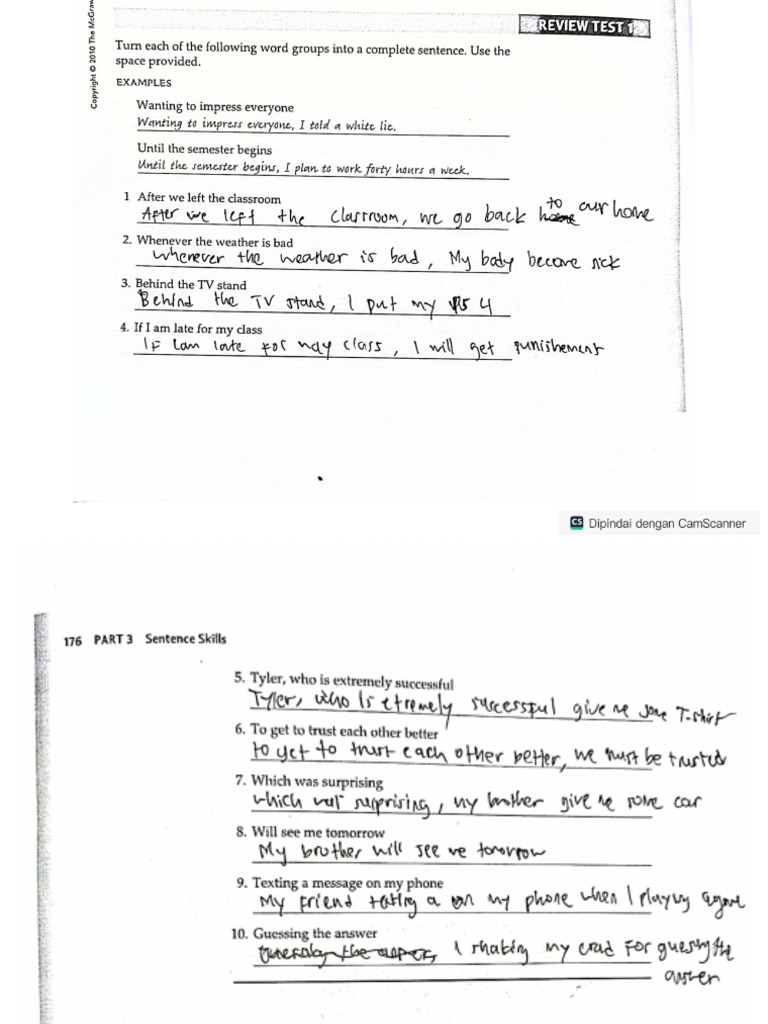 REVIEW TEST 1
Copyright © 2010 The McGraw
Turn each of the following word groups into a complete sentence. Use the
space provided.
EXAMPLES
Wanting to impress everyone
Wanting to impress everyone, I told a white lie.
Until the semester begins
Until the semester begins, I plan to work forty hours a week.
1 After we left the classroom
After we left the classroom, we go back to our home
2. Whenever the weather is bad
whenever the weather is bad, My body become sick
3. Behind the TV stand
Behind the TV stand, I put my PS 4
4. If I am late for my class
IF I am late for my class, I will get punishement
CS Dipindai dengan CamScanner
176 PART 3 Sentence Skills
5. Tyler, who is extremely successful
Tyler, who is etremely successful give me some T-shirt
6. To get to trust each other better
to get to trust each other better, we must be trusted
7. Which was surprising
which was surprising, my brother give me some car
8. Will see me tomorrow
My brother will see me tomorrow
9. Texting a message on my phone
My friend a on my phone when I playing a game
10. Guessing the answer
I shaking my for the
answer